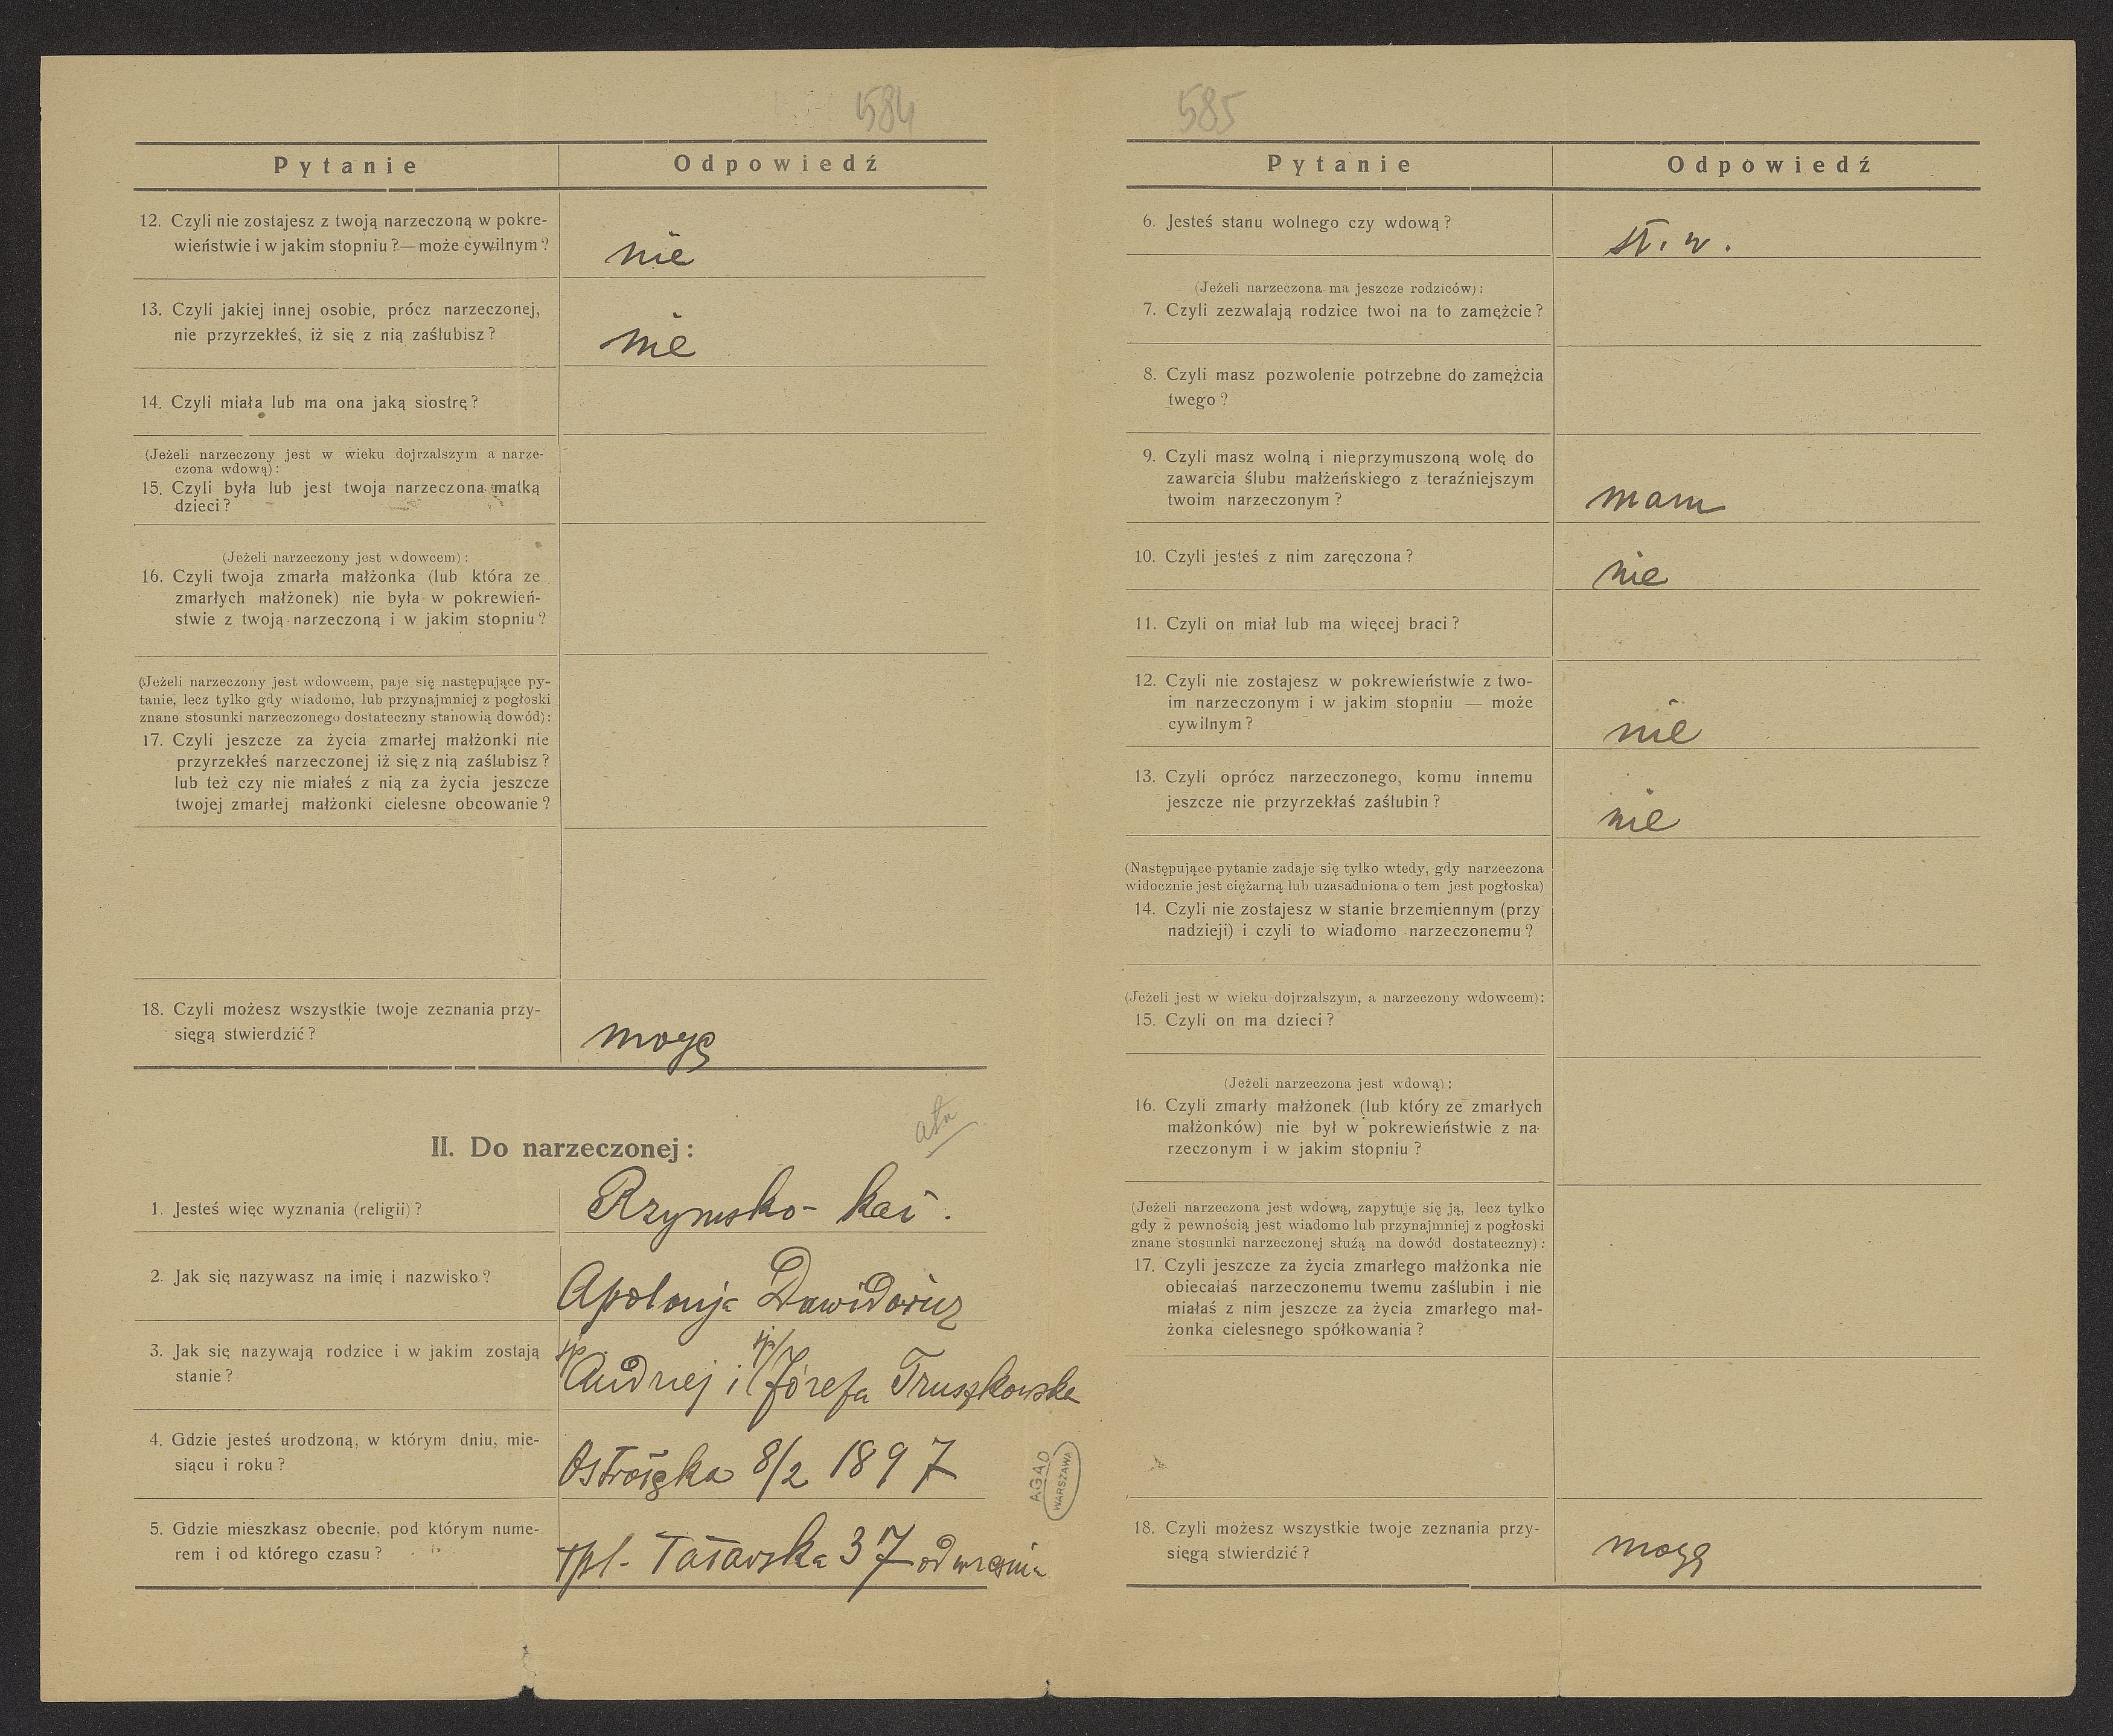 584
Pytanie Odpowiedź
12. Czyli nie zostajesz z twoją narzeczoną w pokre-
wieństwie i w jakim stopniu ?—może cywilnym ?
nie
13. Czyli jakiej innej osobie, prócz narzeczonej,
nie przyrzekłeś, iż się z nią zaślubisz ?
nie
14. Czyli miała lub ma ona jaką siostrę ?
(Jeżeli narzeczony jest w wieku dojrzalszym a narze-
czona wdową) :
15. Czyli była lub jest twoja narzeczona matką
dzieci ?
(Jeżeli narzeczony jest wdowcem) :
16. Czyli twoja zmarła małżonka (lub która ze
zmarłych małżonek) nie była w pokrewień-
stwie z twoją narzeczoną i w jakim stopniu ?
(Jeżeli narzeczony jest wdowcem, paje się następujące py-
tanie, lecz tylko gdy wiadomo, lub przynajmniej z pogłoski
znane stosunki narzeczonego dostateczny stanowią dowód) :
17. Czyli jeszcze za życia zmarłej małżonki nie
przyrzekłeś narzeczonej iż się z nią zaślubisz ?
lub też czy nie miałeś z nią za życia jeszcze
twojej zmarłej małżonki cielesne obcowanie ?
18. Czyli możesz wszystkie twoje zeznania przy-
sięgą stwierdzić ?
mogę
II. Do narzeczonej :
1. Jesteś więc wyznania (religii) ?
Rzymsko- kat.
2. Jak się nazywasz na imię i nazwisko ?
Apolonja Dawidowicz
3. Jak się nazywają rodzice i w jakim zostają
stanie ?
śp. Andrzej i śp. Józefa Truszkowska
4. Gdzie jesteś urodzoną, w którym dniu, mie-
siącu i roku ?
8/2 1897
5. Gdzie mieszkasz obecnie, pod którym nume-
rem i od którego czasu ?
Tpl. Tatarska 37 od września
A.G.A.D
WARSZAWA
585
Pytanie Odpowiedź
6. Jesteś stanu wolnego czy wdową ?
st. w.
(Jeżeli narzeczona ma jeszcze rodziców) :
7. Czyli zezwalają rodzice twoi na to zamężcie ?
8. Czyli masz pozwolenie potrzebne do zamężcia
twego ?
9. Czyli masz wolną i nieprzymuszoną wolę do
zawarcia ślubu małżeńskiego z teraźniejszym
twoim narzeczonym ?
mam
10. Czyli jesteś z nim zaręczona ?
nie
11. Czyli on miał lub ma więcej braci ?
12. Czyli nie zostajesz w pokrewieństwie z two-
im narzeczonym i w jakim stopniu — może
cywilnym ?
nie
13. Czyli oprócz narzeczonego, komu innemu
jeszcze nie przyrzekłaś zaślubin ?
nie
(Następujące pytanie zadaje się tylko wtedy, gdy narzeczona
widocznie jest ciężarną lub uzasadniona o tem jest pogłoska)
14. Czyli nie zostajesz w stanie brzemiennym (przy
nadzieji) i czyli to wiadomo narzeczonemu ?
(Jeżeli jest w wieku dojrzalszym, a narzeczony wdowcem) :
15. Czyli on ma dzieci ?
(Jeżeli narzeczona jest wdową) :
16. Czyli zmarły małżonek (lub który ze zmarłych
małżonków) nie był w pokrewieństwie z na-
rzeczonym i w jakim stopniu ?
(Jeżeli narzeczona jest wdową, zapytuje się ją, lecz tylko
gdy z pewnością jest wiadomo lub przynajmniej z pogłoski
znane stosunki narzeczonej służą na dowód dostateczny) :
17. Czyli jeszcze za życia zmarłego małżonka nie
obiecałaś narzeczonemu twemu zaślubin i nie
miałaś z nim jeszcze za życia zmarłego mał-
żonka cielesnego spółkowania ?
18. Czyli możesz wszystkie twoje zeznania przy-
sięgą stwierdzić ?
mogę